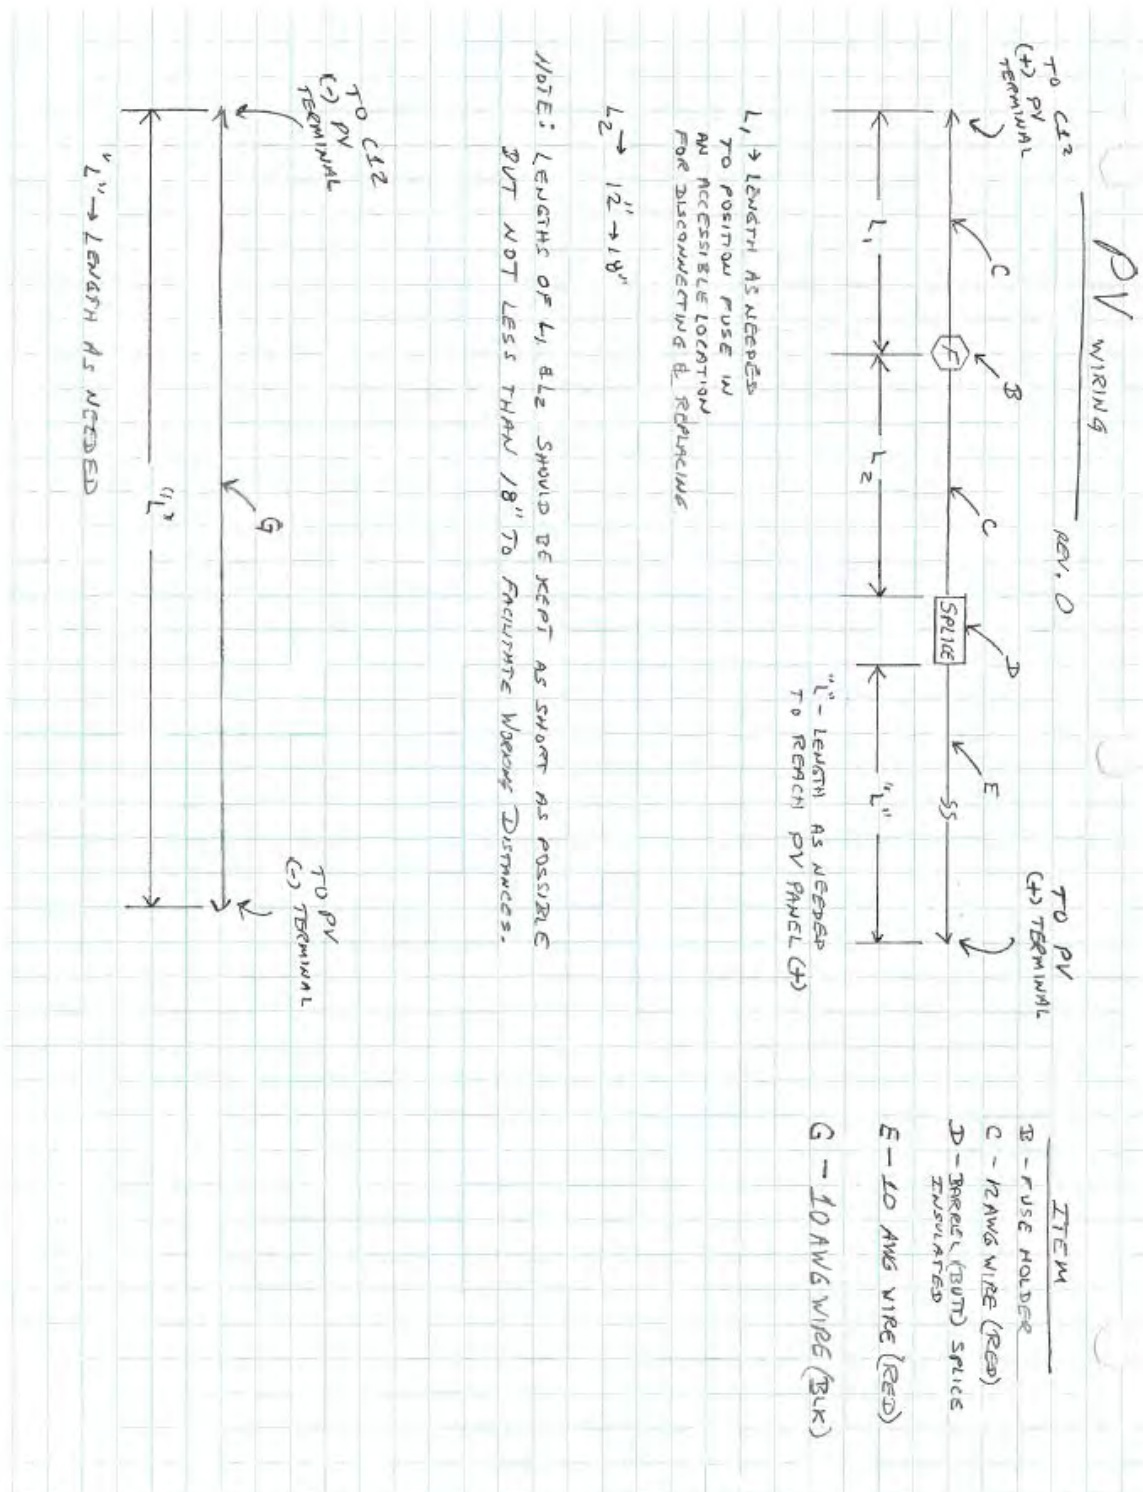 PV WIRING
REV. 0
TO C12
(+) PV
TERMINAL
C
B
F
C
D
SPLICE
E
SS
TO PV
(+) TERMINAL
L1
L2
"L"
"L" - LENGTH AS NEEDED
TO REACH PV PANEL (+)
L1 → LENGTH AS NEEDED
TO POSITION FUSE IN
AN ACCESSIBLE LOCATION
FOR DISCONNECTING & REPLACING
L2 → 12" → 18"
NOTE: LENGTHS OF L1 & L2 SHOULD BE KEPT AS SHORT AS POSSIBLE
BUT NOT LESS THAN 18" TO FACILITATE WORKING DISTANCES.
TO C12
(-) PV
TERMINAL
G
TO PV
(-) TERMINAL
"L"
"L" → LENGTH AS NEEDED
ITEM
B - FUSE HOLDER
C - 12 AWG WIRE (RED)
D - BARREL (BUTT) SPLICE
INSULATED
E - 10 AWG WIRE (RED)
G - 10 AWG WIRE (BLK)